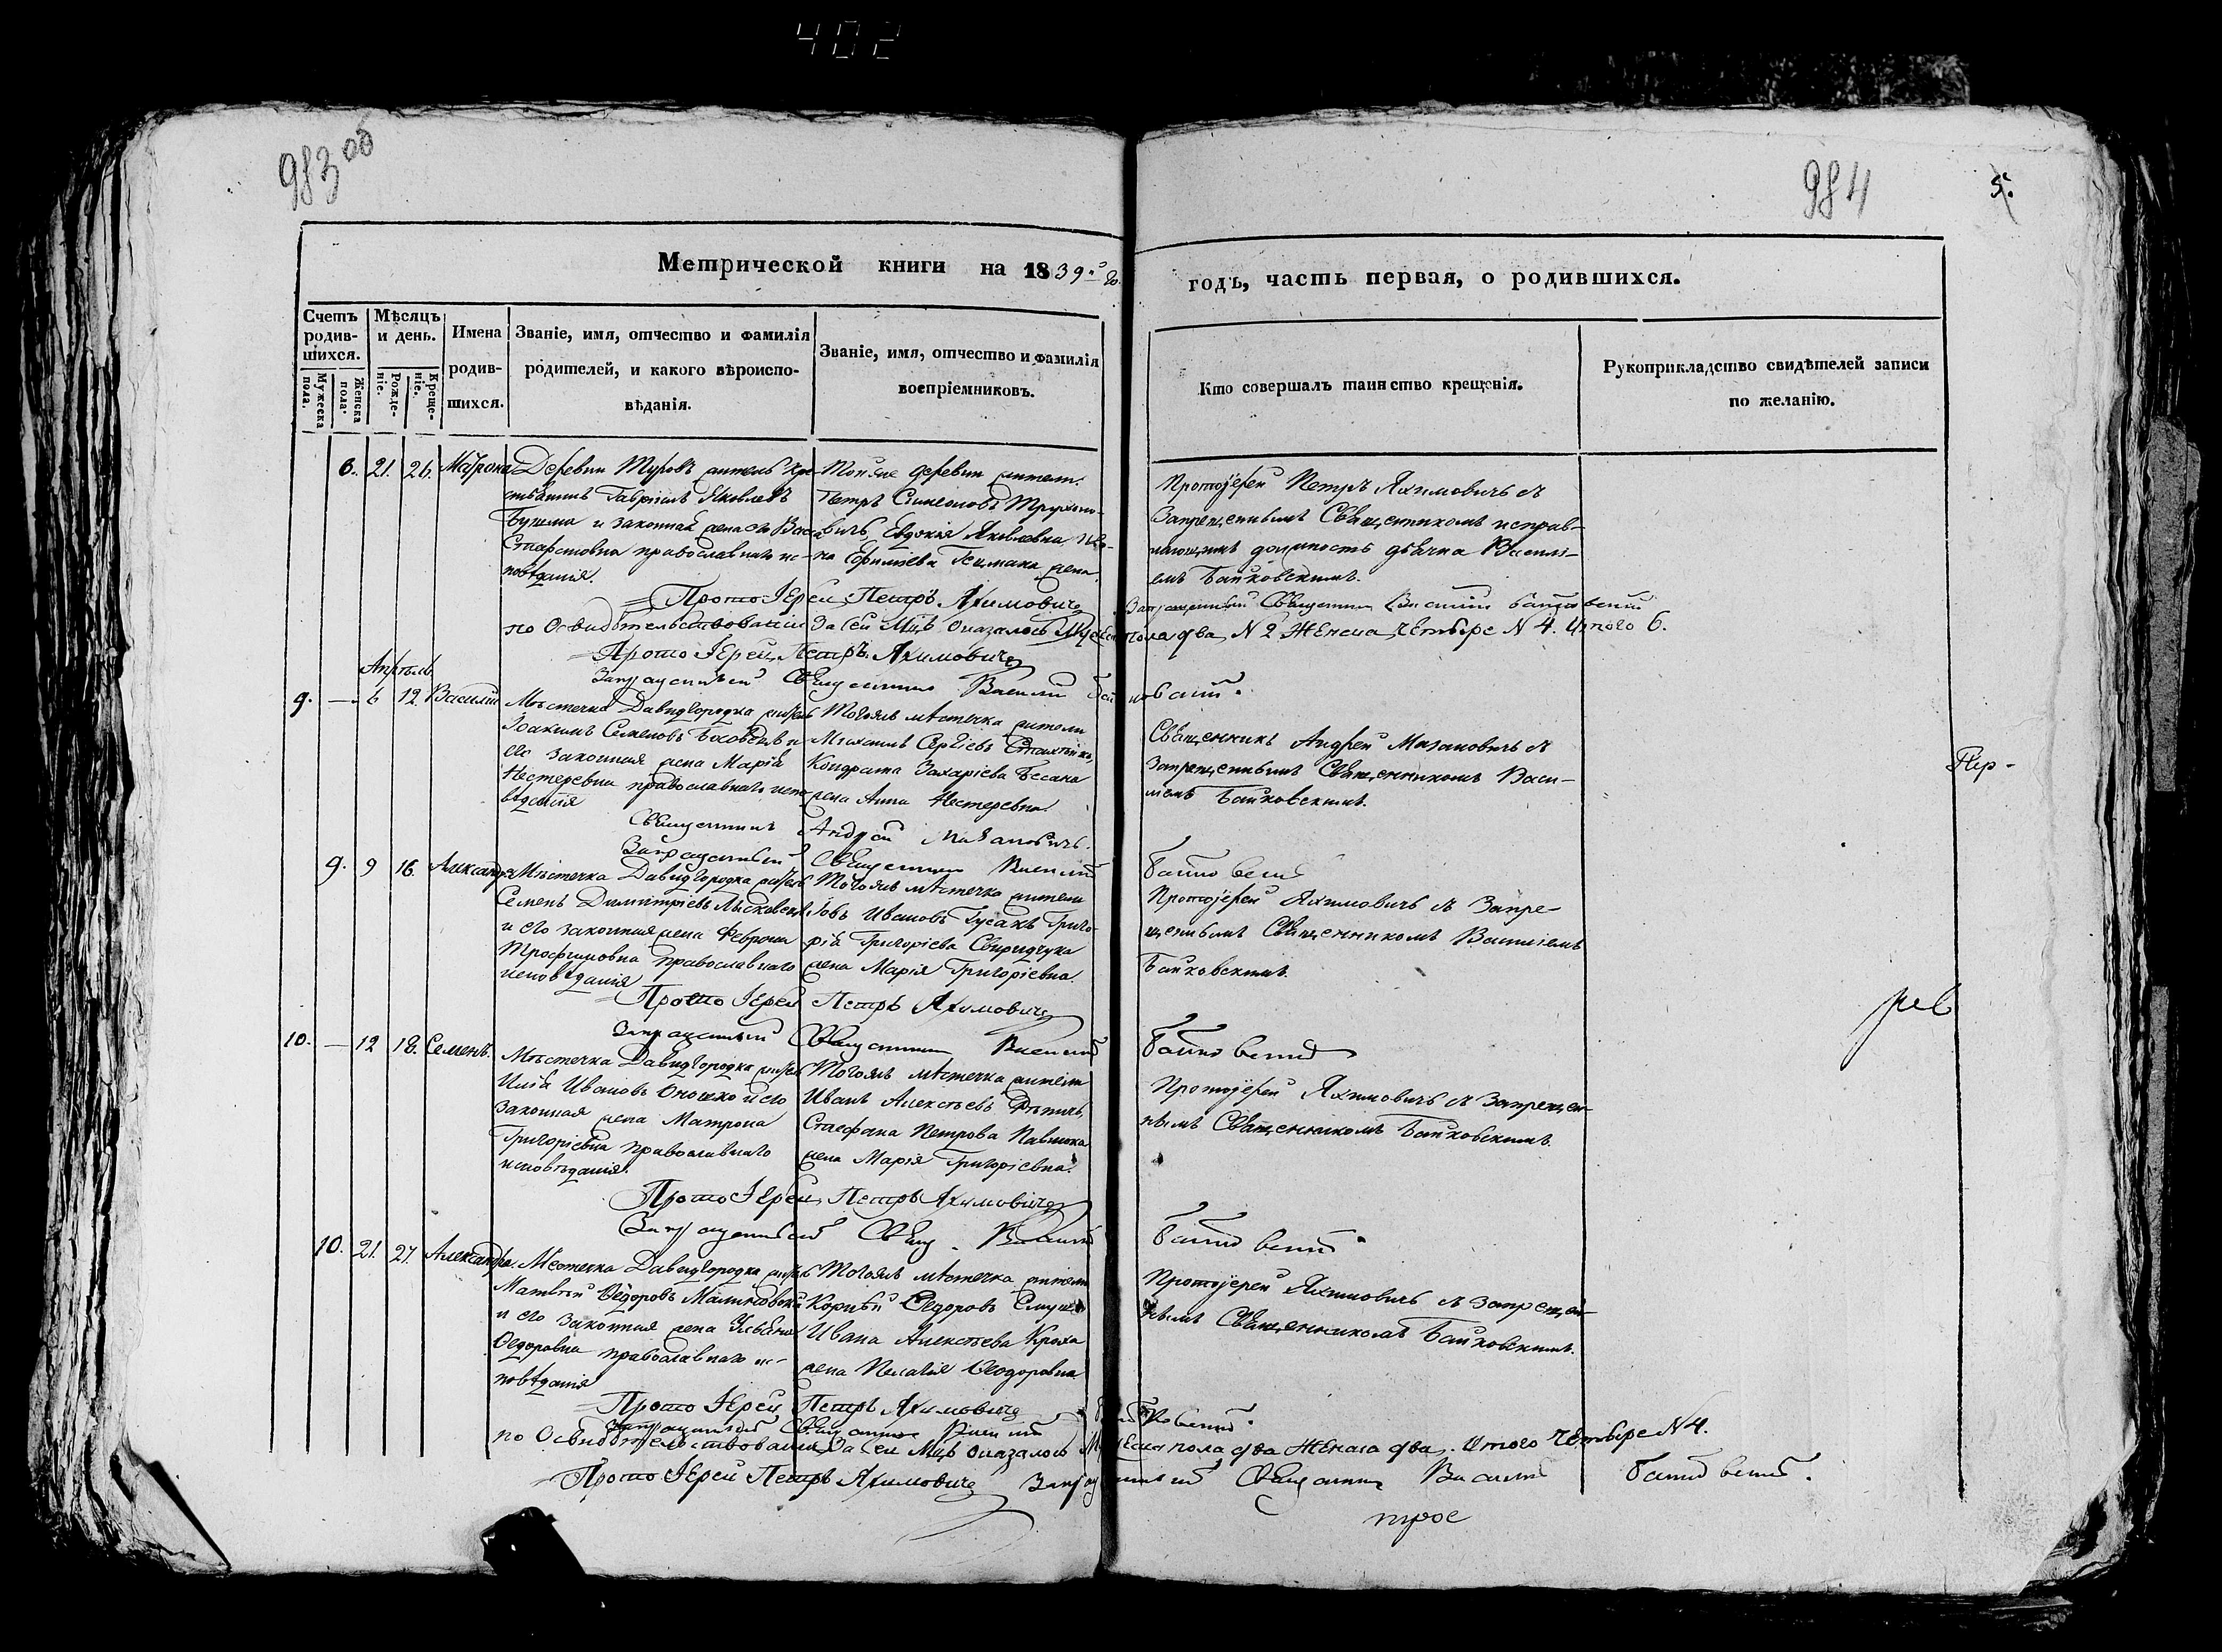 402
983 об
984
5.
Метрической книги на 1839 го
годъ, часть первая, о родившихся.
Счетъ родившихся.
Мужеска пола.
Женска пола.
Мѣсяцъ и день.
Рожденіе.
Крещеніе.
Имена родившихся.
Званіе, имя, отчество и фамилія
родителей, и какого вѣроиспо-
вѣданія.
Званіе, имя, отчество и фамилія
воспріемниковъ.
Кто совершалъ таинство крещенія.
Рукоприкладство свидѣтелей записи
по желанію.
6. 21. 26. Матрона
Деревни Туровъ житель Кре-
стьянинъ Гавріилъ Яковлевъ
и законная жена его
православнаго ис-
повѣданія.
Той же деревни житель
Петръ Симеоновъ
вичъ, Евдокія Яковлевна
жена.
Протоіерей Петръ Яхимовичъ съ
Запрещеннымъ Священникомъ исправ-
ляющимъ должность дьячка Василі-
емъ Байковскимъ.
Протоіерей Петръ Яхимовичъ
Запрещенный Священникъ Василій Байковскій
по Освидѣтельствованіи За Сей Мцъ оказалось Мужеска пола два N 2 Женска четыре N 4. Итого 6.
Протоіерей Петръ Яхимовичъ
Запрещенный Священникъ Василій Байковскій.
Апрѣль
9. — 6 12. Василій
Мѣстечка Давидгородка житель
Іоакимъ Семеновъ и
его законная жена Марія
Нестеревна православнаго испо
вѣданія
Тогожъ мѣстечка жители
Михаилъ Сергіевъ
Кондрата Захаріева
жена Анна Нестеревна.
Священникъ Андрей Мизановичъ съ
Запрещеннымъ Священникомъ Васи-
ліемъ Байковскимъ.
Пер-
Священникъ Андрей Мизановичъ.
Запрещенный Священникъ Василій Байковскій
9. 9 16. Александра
Мѣстечка Давидгородка житель
Семенъ Димитріевъ Лисковецъ
и его законная жена Феврона
Трофимовна православнаго
исповѣданія
Тогожъ мѣстечка жители
Іовъ Ивановъ Гусакъ Григо-
рія Григоріева Свиридчука
жена Марія Григоріевна.
Протоіерей Яхимовичъ съ Запре-
щеннымъ Священникомъ Василіемъ
Байковскимъ.
Протоіерей Петръ Яхимовичъ
Запрещенный Священникъ Василій Байковскій
10. — 12 18. Семенъ.
Мѣстечка Давидгородка житель
Илья Ивановъ Оношко и его
законная жена Матрона
Григоріевна православнаго
исповѣданія.
Тогожъ мѣстечка жители
Иванъ Алексѣевъ
Стефана Петрова Павлюка
жена Марія Григоріевна.
Протоіерей Яхимовичъ съ Запрещен-
нымъ Священникомъ Байковскимъ.
Протоіерей Петръ Яхимовичъ
Запрещенный Свящ. Василій Байковскій.
10. 21. 27. Александра.
Местечка Давидгородка житель
Матвѣй Ѳедоровъ Малиновскій
и его законная жена Ульяна
Ѳедоровна православнаго ис-
повѣданія
Тогожъ мѣстечка жители
Корнѣй Ѳедоровъ
Ивана Алексѣева
жена Пелагія Ѳеодоровна
Протоіерей Яхимовичъ съ Запрещен-
нымъ Священникомъ Байковскимъ.
Протоіерей Петръ Яхимовичъ
Запрещенный Священникъ Василій Байковскій.
по Освидѣтельствованіи За Сей Мцъ оказалось Мужеска пола два Женска два. Итого Четыре N 4.
Протоіерей Петръ Яхимовичъ Запрещенный Священникъ Василій Байковскій.
трое